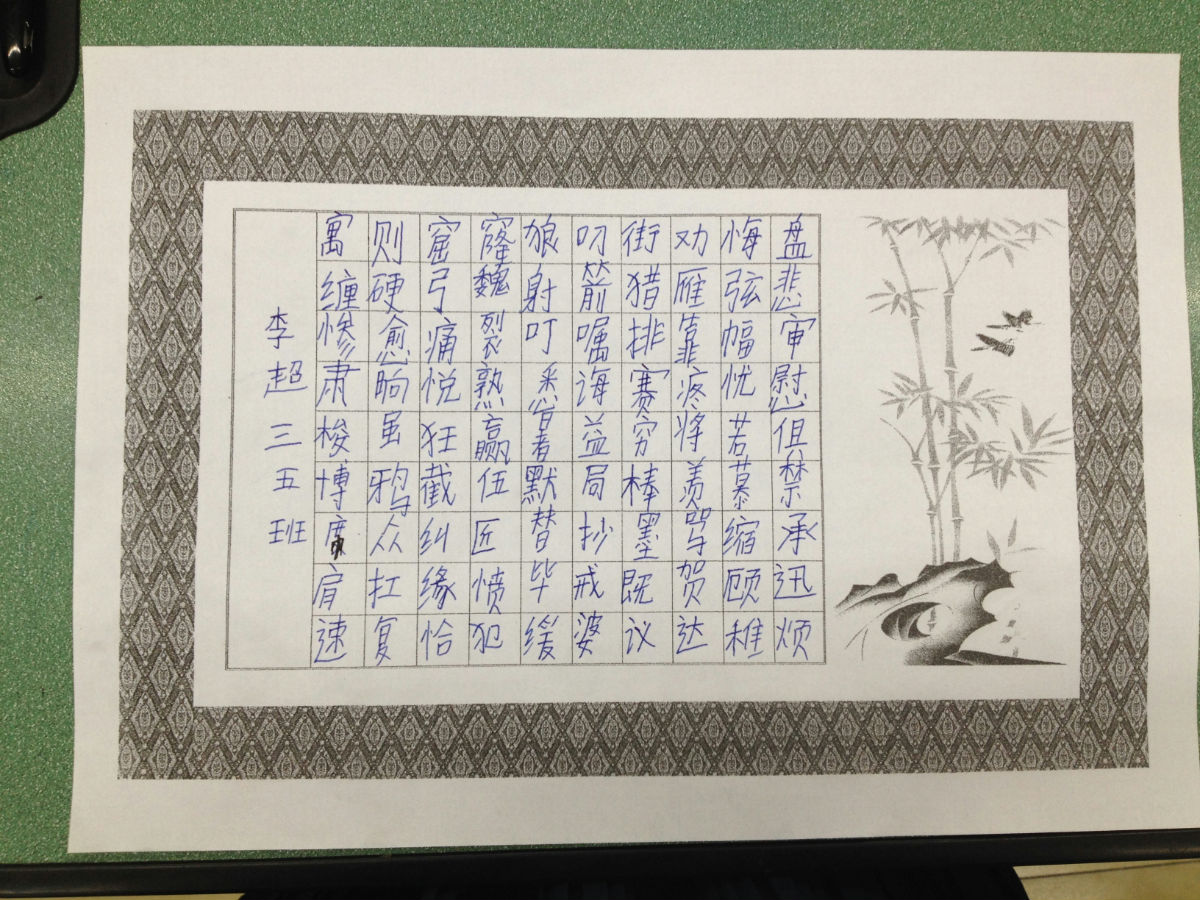 寓则窟窿狼叼街劝悔盘
缠硬弓魏射箭猎雁弦悲
惨愈痛裂叮嘱排靠幅审
肃晌悦熟悉诲赛疼忧慰
梭虽狂赢益穷将若
博鸦截伍默局棒羡慕禁
众纠匠替抄墨骂缩承
肩扛缘愤毕戒既贺顾迅
速复恰犯缓婆议达稚烦
李超三五班